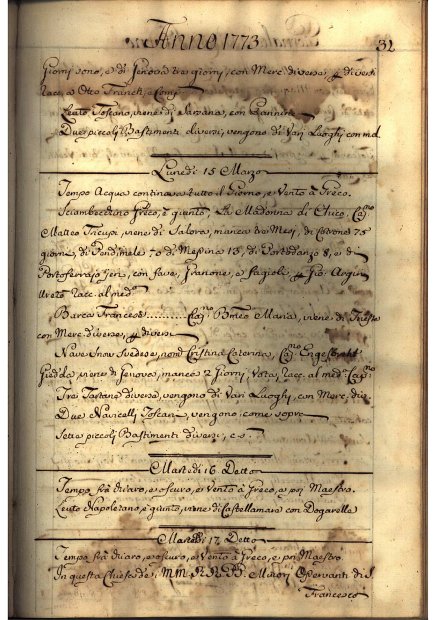 Anno 1773
32
Giorni sono, e di Genova tre giorni, con Merc. diverse, p diversi
Racc. a Otto Franchi, e Comp.
Leuto Toscano, viene di Sarzana, con
Due piccoli Bastimenti diversi, vengono di Vari Luoghi con md.
Lunedi 15 Marzo
Tempo Acqua continova tutto il Giorno, e Vento à Greco.
Sciambecchino Greco, è giunto, La Madonna di Cap.no
Matteo viene di manca tre Mesi, di Corone 75
giorni di 70 di Messina 13, di Portolongo 8, e di
Portoferraio jeri, con fave, e fagioli p Gio.
Racc. al med.o
Barca Francese ......... Cap.no Maria, viene di
con Merc. diverse, p diversi
Nave Snow Svedese, nom. Cristina Caterina, Cap.no
viene di Genova, manca 2 Giorni, Vota, Racc. al med.o Cap.no
Tre Tartane diverse, vengono di Vari Luoghi, con Merc. div.
Due Navicelli Toscani, vengono come sopra
Sette piccoli Bastimenti diversi, c. s.
Martedi 16 Detto
Tempo frà chiaro, e oscuro, e Vento à Greco, e poi Maestro.
Leuto Napoletano, è giunto, viene di Castellamare con Dogarelle
17 Detto
Tempo frà chiaro, e oscuro, e Vento à Greco, e poi Maestro.
In questa Chiesa de' MM. RR. PP. Minori Osservanti di S.
Francesco